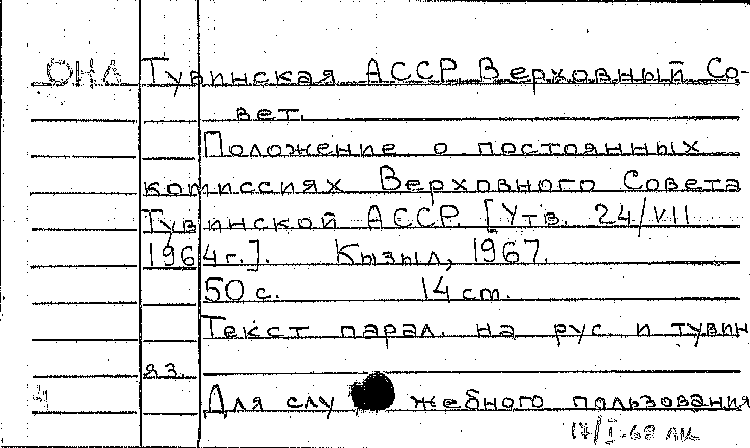 ОНЛ Тувинская АССР. Верховный Со-
вет.
Положение о постоянных
комиссиях Верховного Совета
Тувинской АССР. [Утв. 24/VII
1964г.]. Кызыл, 1967.
50 с. 14 см.
Текст парал. на рус. и тувин
яз.
4 Для служебного пользования
17/I-68